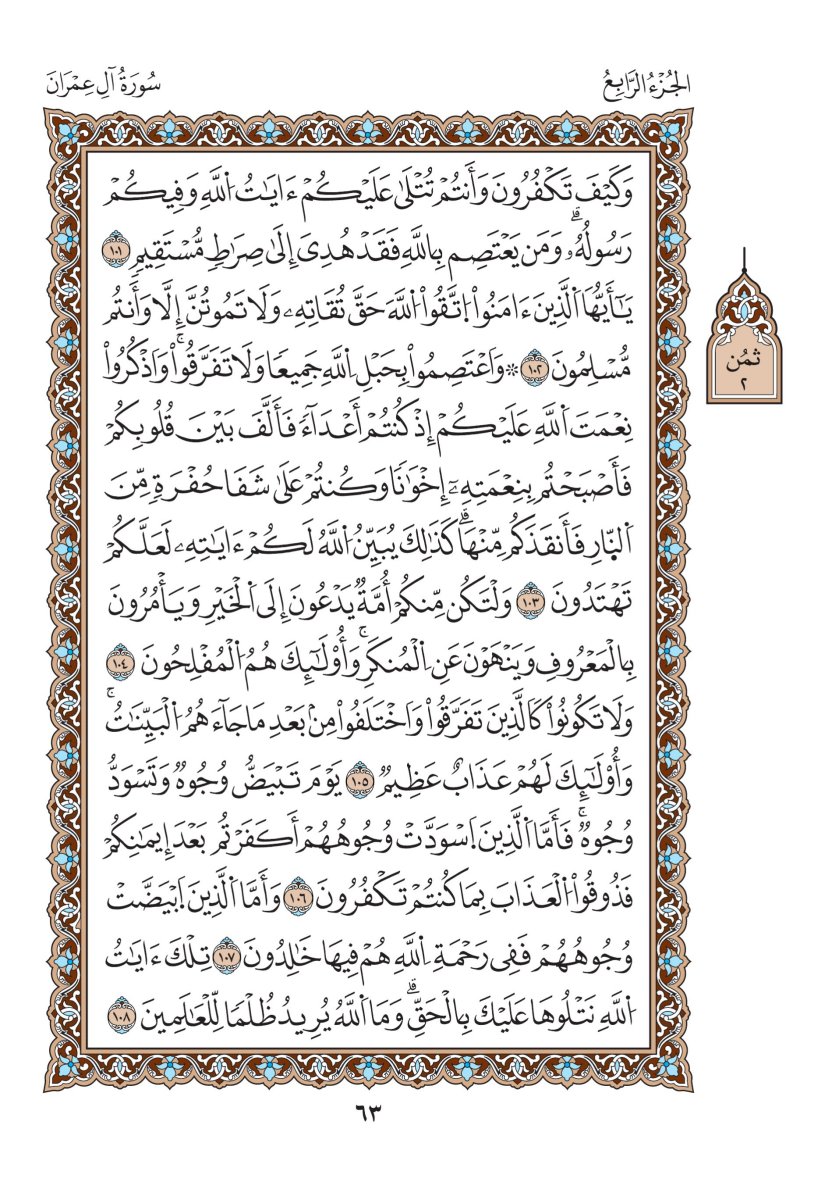 الجُزْءُ الرَّابِعُ
سُورَةُ آلِ عِمْرَانَ
وَكَيْفَ تَكْفُرُونَ وَأَنتُمْ تُتْلَىٰ عَلَيْكُمْ ءَايَٰتُ اُ۬للَّهِ وَفِيكُمْ
رَسُولُهُۥۗ وَمَن يَعْتَصِم بِاللَّهِ فَقَدْ هُدِىَ إِلَىٰ صِرَٰطٖ مُّسْتَقِيمٖ ١٠١
يَٰٓأَيُّهَا اَ۬لَّذِينَ ءَامَنُواْ اُ۪تَّقُواْ اُ۬للَّهَ حَقَّ تُقَاتِهِۦ وَلَا تَمُوتُنَّ إِلَّا وَأَنتُم
مُّسْلِمُونَ ١٠٢ ۞ وَاَعْتَصِمُواْ بِحَبْلِ اِ۬للَّهِ جَمِيعٗا وَلَا تَفَرَّقُواْۚ وَاَذْكُرُواْ
نِعْمَتَ اَ۬للَّهِ عَلَيْكُمْ إِذْ كُنتُمْ أَعْدَآءٗ فَأَلَّفَ بَيْنَ قُلُوبِكُمْ
فَأَصْبَحْتُم بِنِعْمَتِهِۦٓ إِخْوَٰنٗا وَكُنتُمْ عَلَىٰ شَفَا حُفْرَةٖ مِّنَ
اَ۬لنّ۪ارِ فَأَنقَذَكُم مِّنْهَاۗ كَذَٰلِكَ يُبَيِّنُ اُ۬للَّهُ لَكُمْ ءَايَٰتِهِۦ لَعَلَّكُمْ
تَهْتَدُونَ ١٠٣ وَلْتَكُن مِّنكُمْ أُمَّةٞ يَدْعُونَ إِلَى اَ۬لْخَيْرِ وَيَأْمُرُونَ
بِالْمَعْرُوفِ وَيَنْهَوْنَ عَنِ اِ۬لْمُنكَرِۚ وَأُوْلَٰٓئِكَ هُمُ اُ۬لْمُفْلِحُونَ ١٠٤
وَلَا تَكُونُواْ كَالَّذِينَ تَفَرَّقُواْ وَاَخْتَلَفُواْ مِنۢ بَعْدِ مَا جَآءَهُمُ اُ۬لْبَيِّنَٰتُۚ
وَأُوْلَٰٓئِكَ لَهُمْ عَذَابٌ عَظِيمٞ ١٠٥ يَوْمَ تَبْيَضُّ وُجُوهٞ وَتَسْوَدُّ
وُجُوهٞۚ فَأَمَّا اَ۬لَّذِينَ اَ۪سْوَدَّتْ وُجُوهُهُمْ أَكَفَرْتُم بَعْدَ إِيمَٰنِكُمْ
فَذُوقُواْ اُ۬لْعَذَابَ بِمَا كُنتُمْ تَكْفُرُونَ ١٠٦ وَأَمَّا اَ۬لَّذِينَ اَ۪بْيَضَّتْ
وُجُوهُهُمْ فَفِى رَحْمَةِ اِ۬للَّهِ هُمْ فِيهَا خَٰلِدُونَ ١٠٧ تِلْكَ ءَايَٰتُ
اُ۬للَّهِ نَتْلُوهَا عَلَيْكَ بِالْحَقِّۗ وَمَا اَ۬للَّهُ يُرِيدُ ظُلْمٗا لِّلْعَٰلَمِينَ ١٠٨
ثُمُن
٢
٦٣